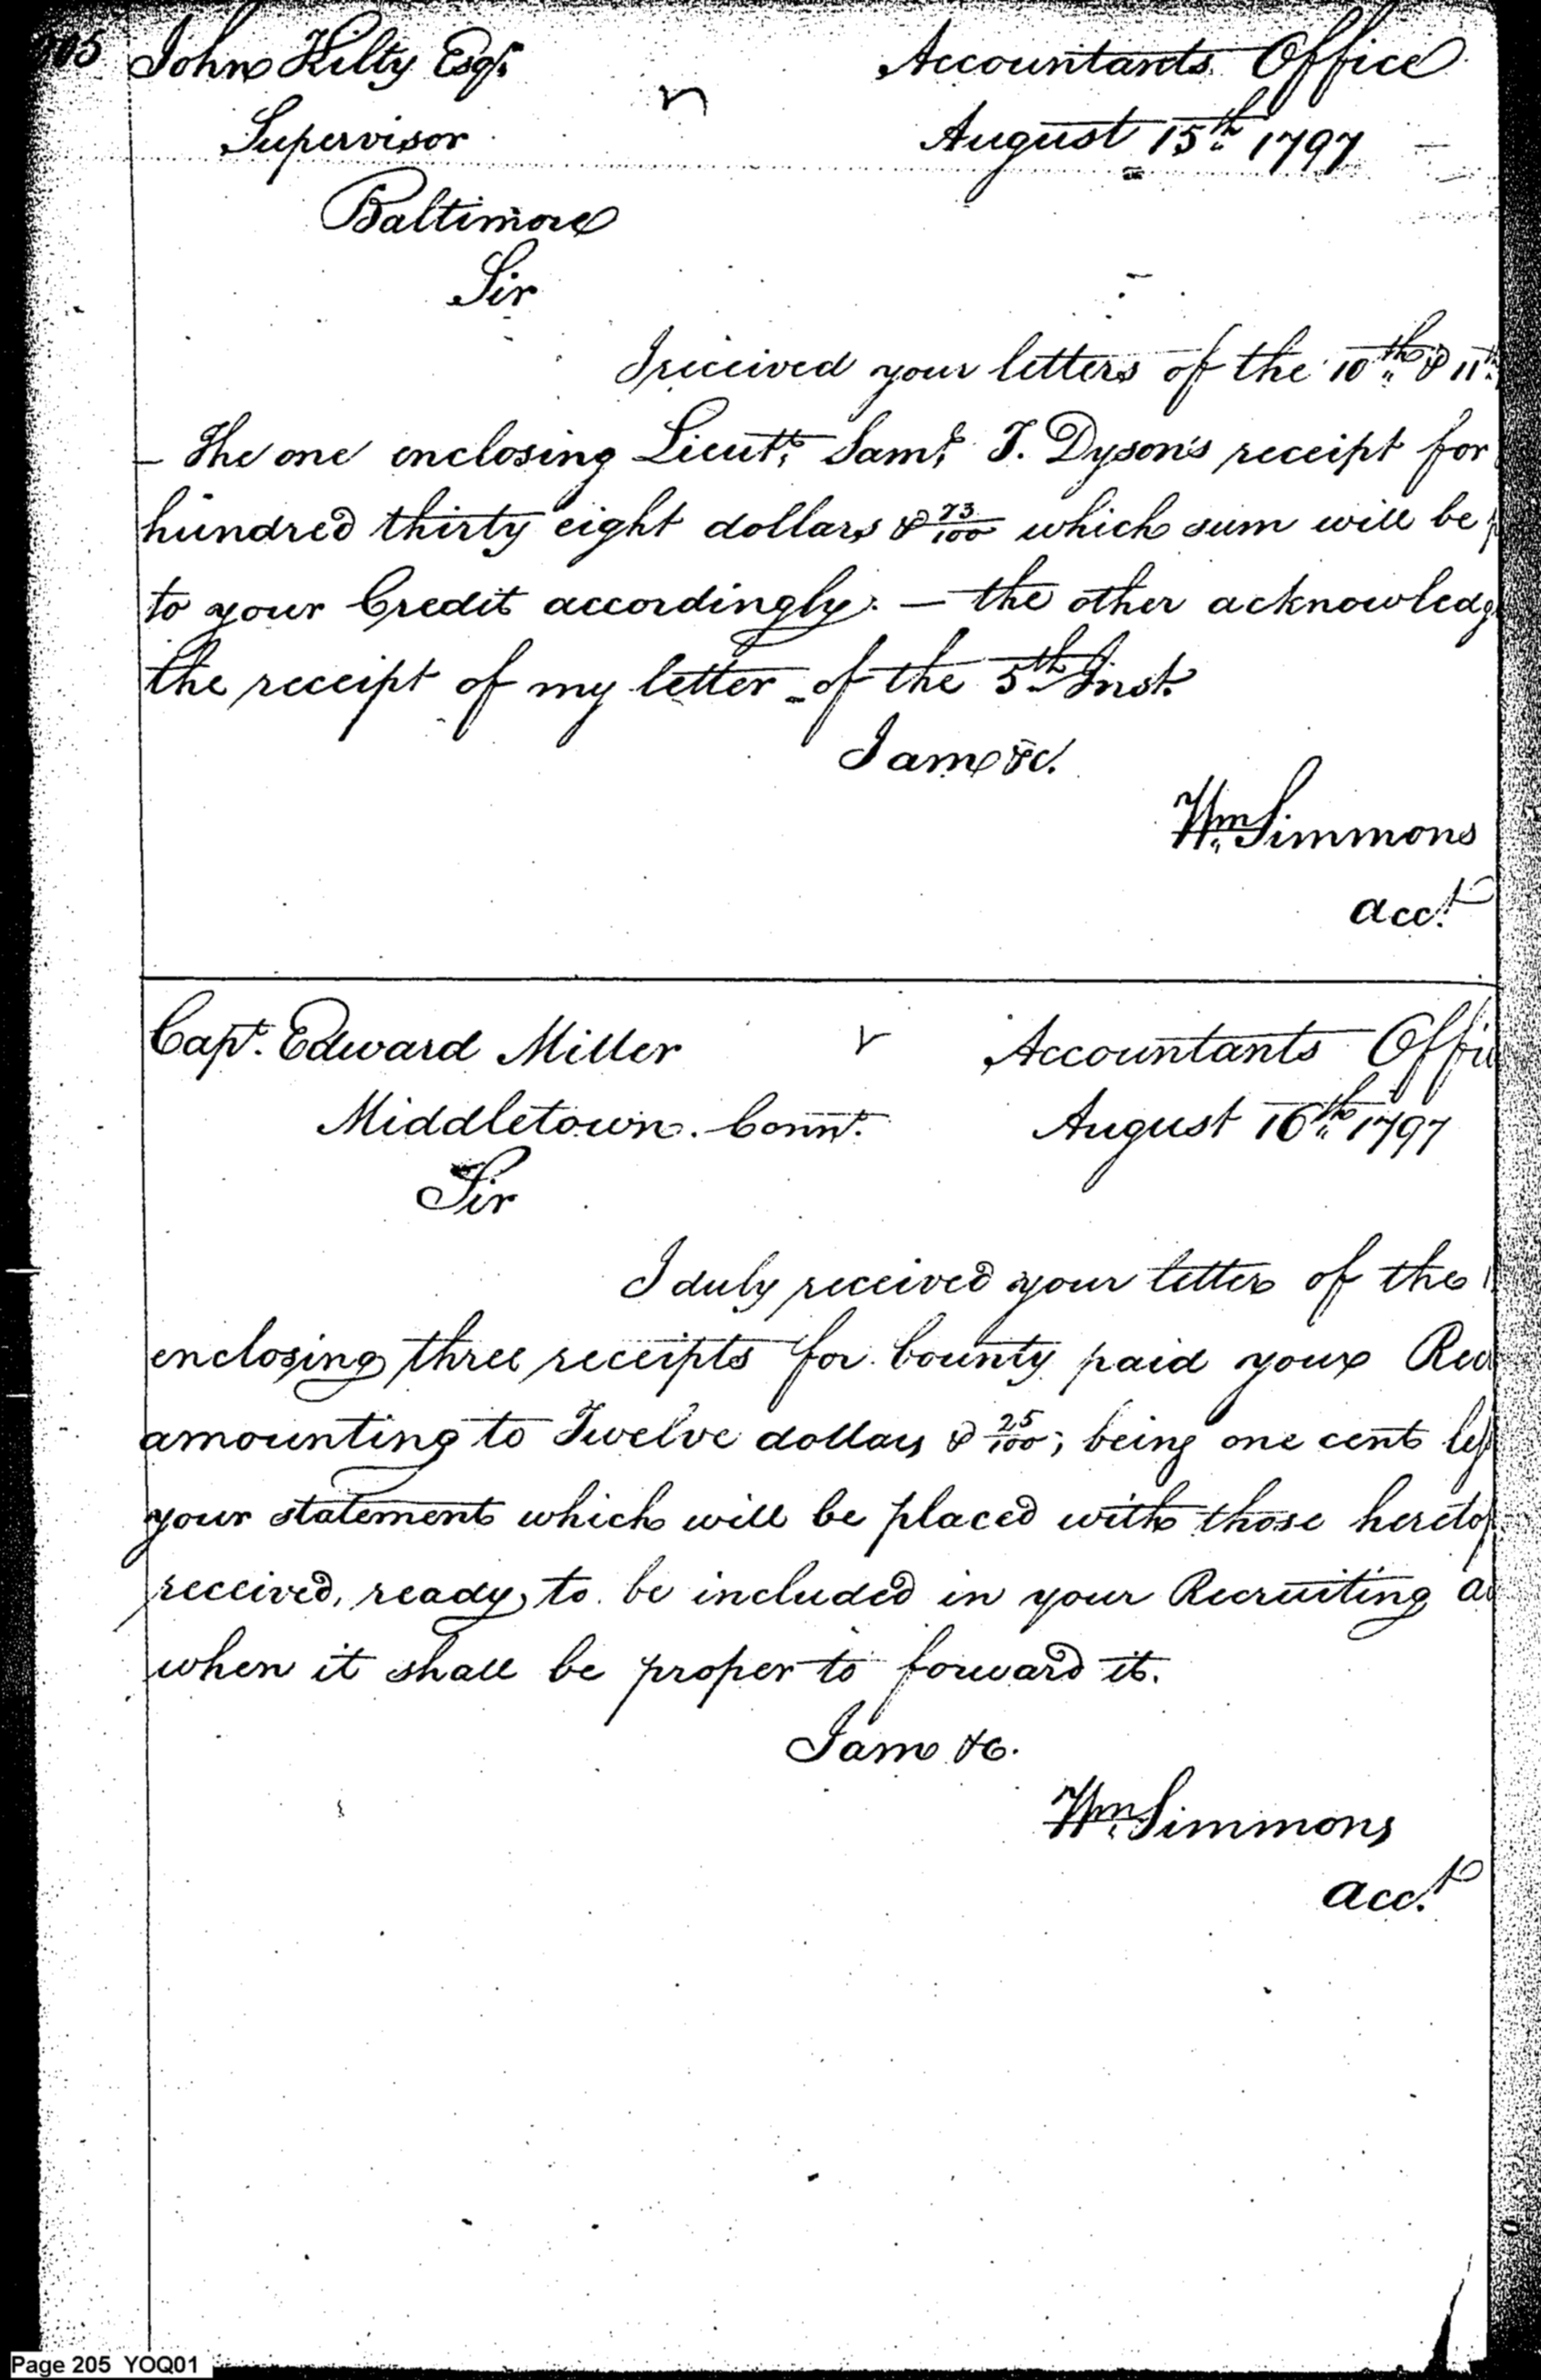 205
John Kilty Esqr. Accountants Office
Supervisor August 15th 1797
Baltimore
Sir
I received your letters of the 10th & 11th
– The one enclosing Lieutt. Saml. T. Dyson's receipt for
hundred thirty eight dollars & 73/100 which sum will be
to your Credit accordingly. – the other acknowledg
the receipt of my letter of the 5th Inst.
I am &c.
Wm Simmons
Acct.
Capt. Edward Miller Accountants Offic
Middletown. Connt. August 16th 1797
Sir
I duly received your letter of the
enclosing three receipts for bounty paid your Rec
amounting to Twelve dollars & 25/100; being one cent less
your statement which will be placed with those heretof
received, ready, to be included in your Recruiting a
when it shall be proper to forward it.
I am &c.
Wm Simmons
Acct.
Page 205 YOQ01